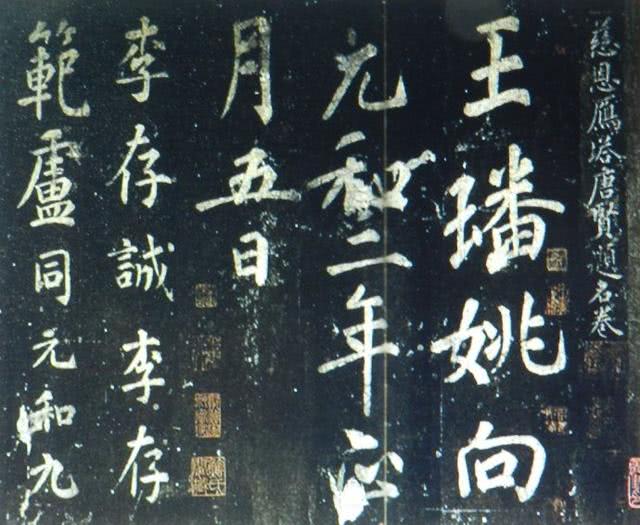 慈恩鴈塔唐賢題名卷
王璠姚向
元和二年正
月五日
李存誠李存
範盧同元和九